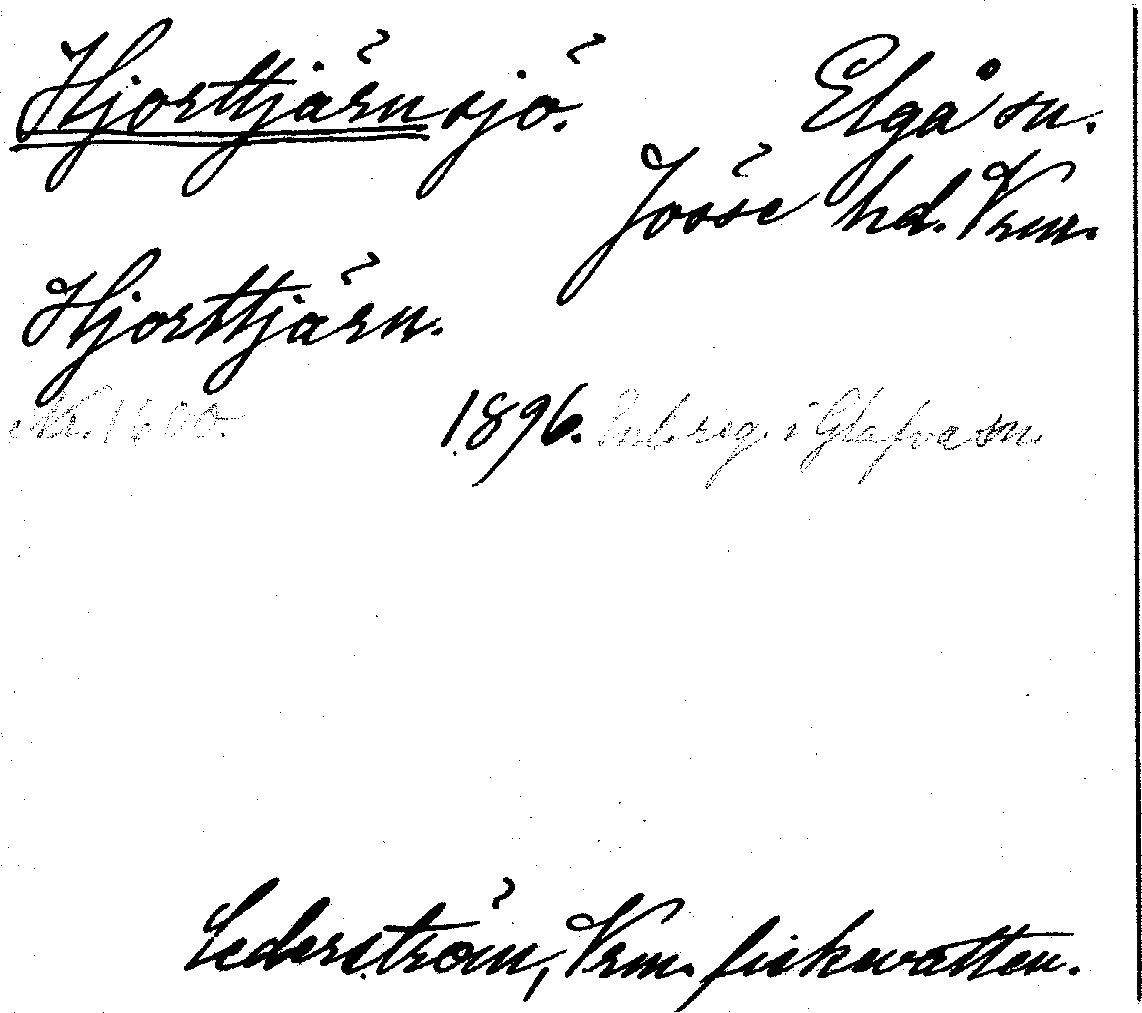 Hjorttjärn sjö. Elgå sn.
Jösse hd. Vrm.
Hjorttjärn.
Nr. 1600. 1896. Enl. reg. i Glafva sn.
Cederström, Vrm. fiskevatten.